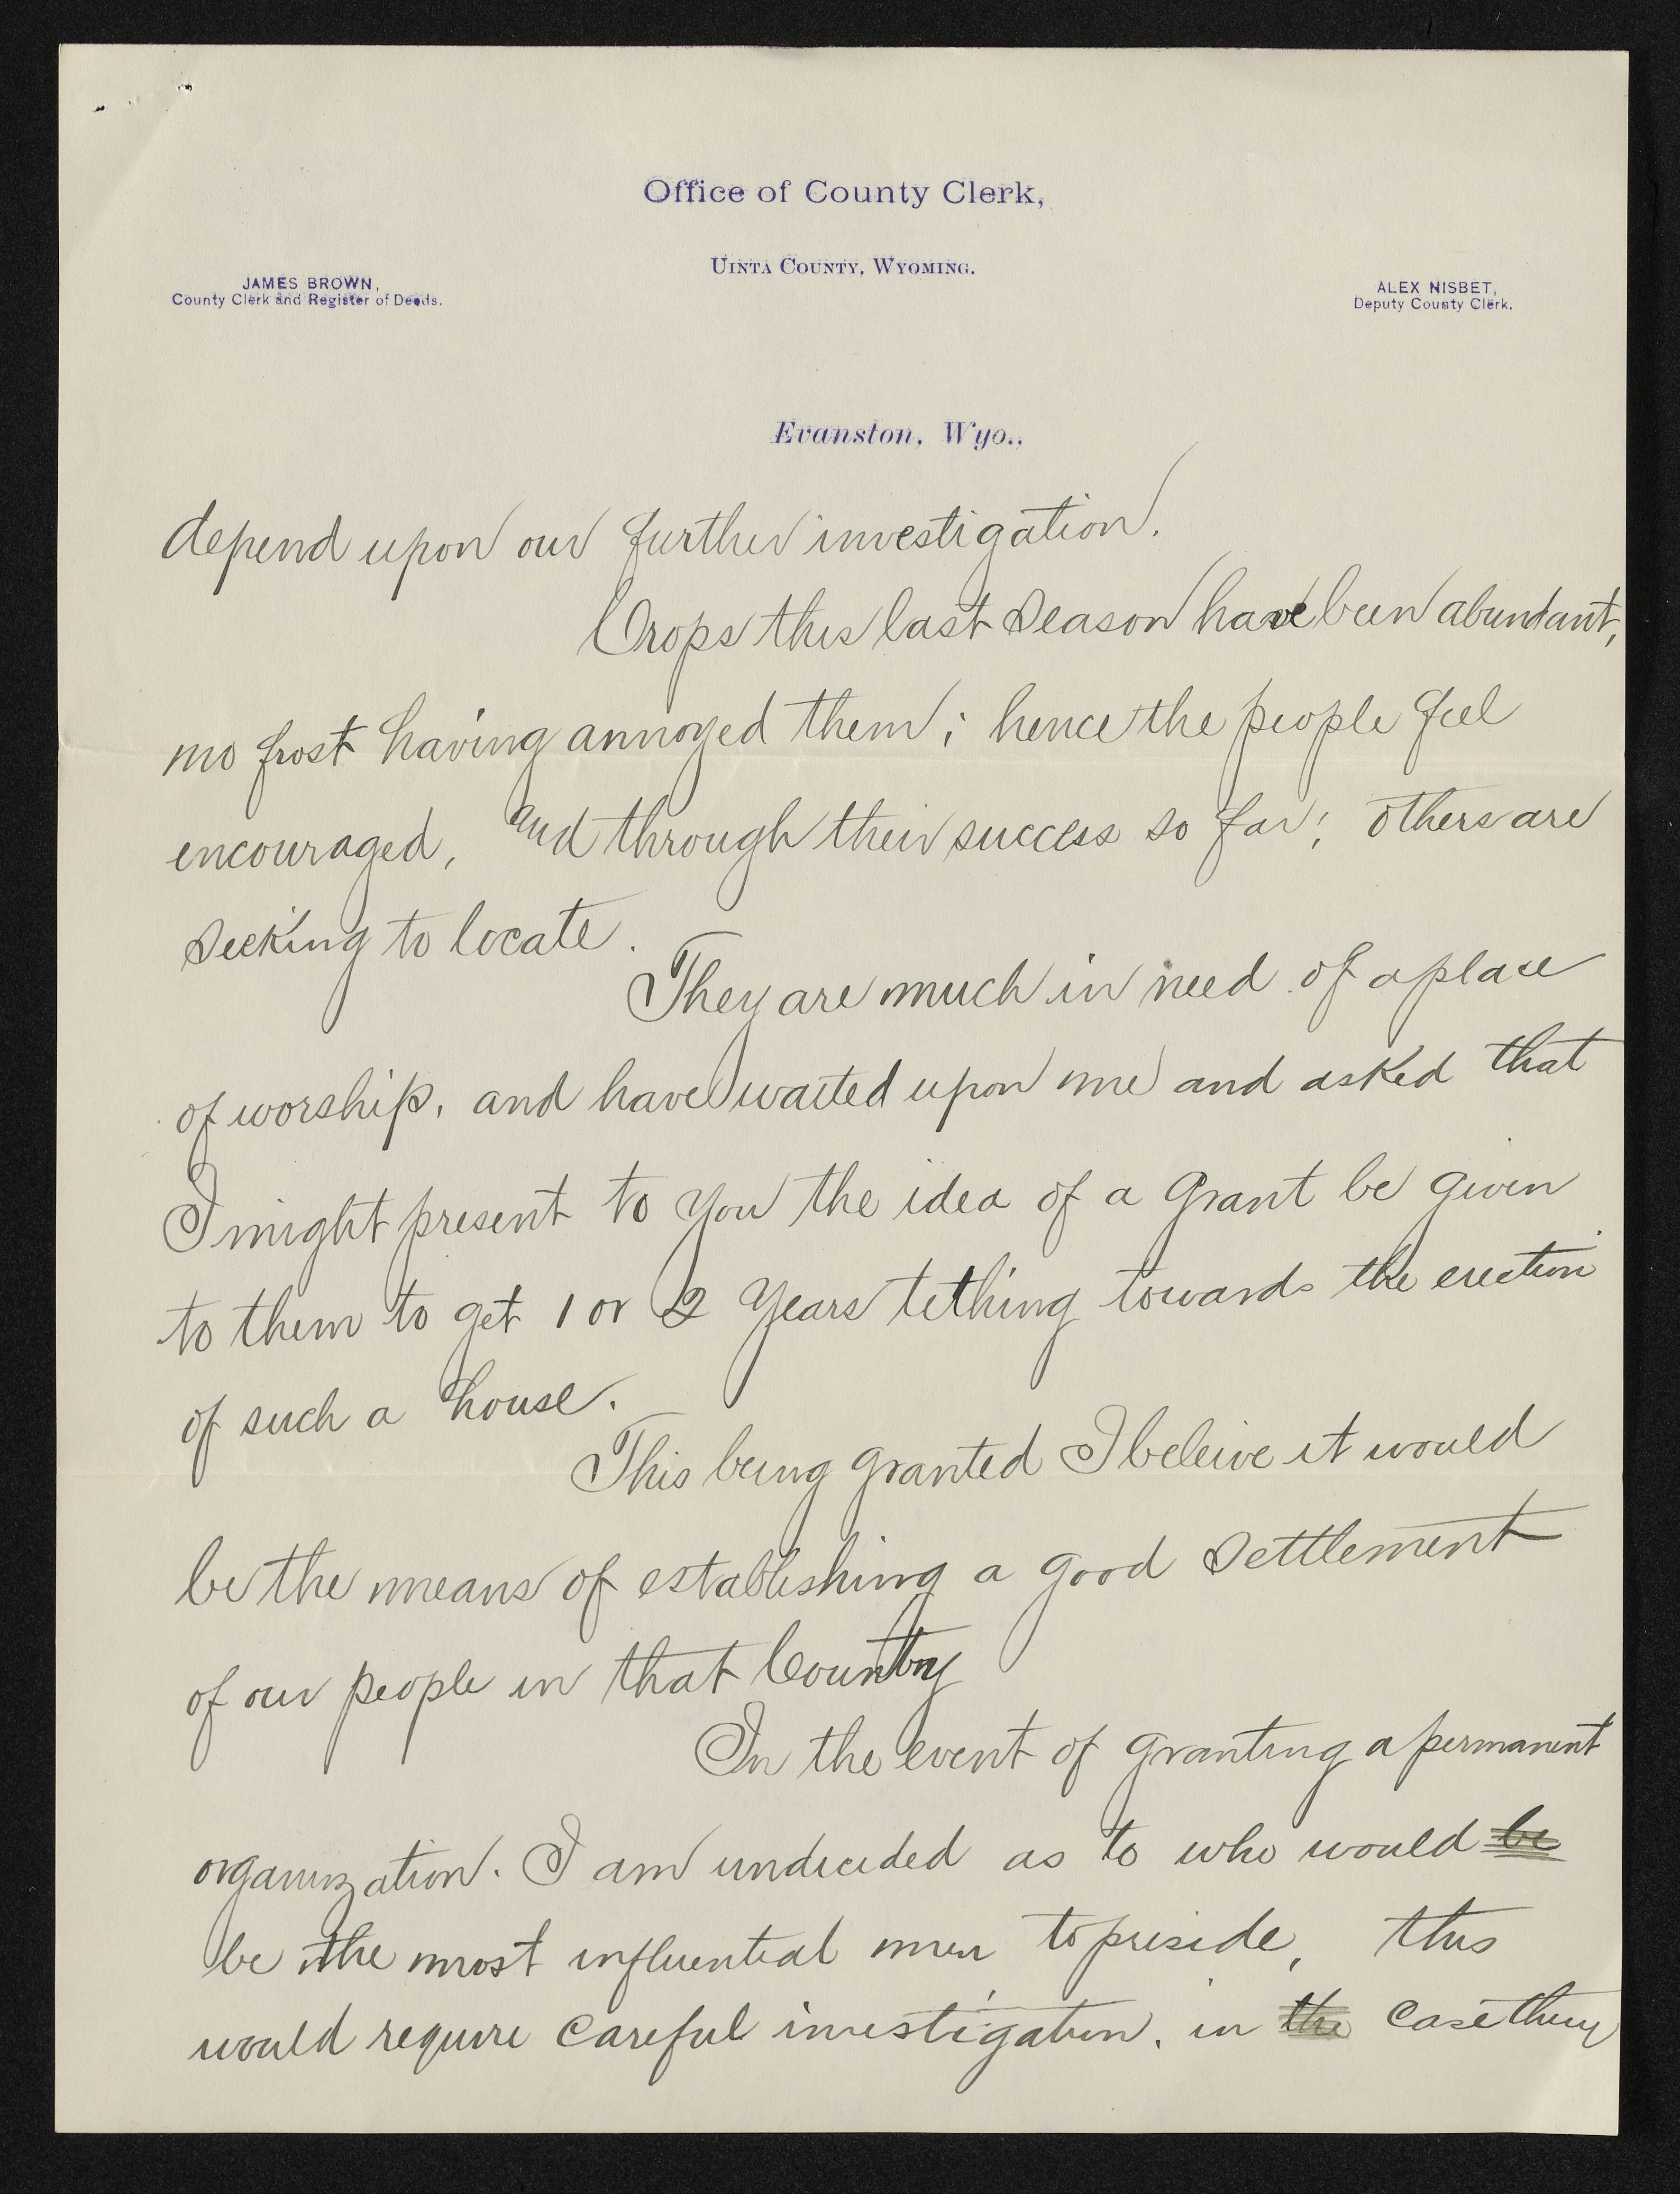 Office of County Clerk,
Uinta County, Wyoming.
JAMES BROWN,
County Clerk and Register of Deeds.
ALEX NISBET,
Deputy County Clerk.
Evanston, Wyo.,
depend upon our further investigation.
Crops this last Season have been abundant,
no frost having annoyed them; hence the people feel
encouraged, and through their success so far; others are
Seeking to locate.
They are much in need of a place
of worship, and have waited upon me and asked that
I might present to you the idea of a Grant be given
to them to get 1 or 2 Years tithing towards the erection
of such a house.
This being granted I beleive it would
be the means of establishing a good Settlement
of our people in that Country
In the event of granting a permanent
organization. I am undecided as to who would be
be the most influential men to preside, this
would require careful investigation. in the case they